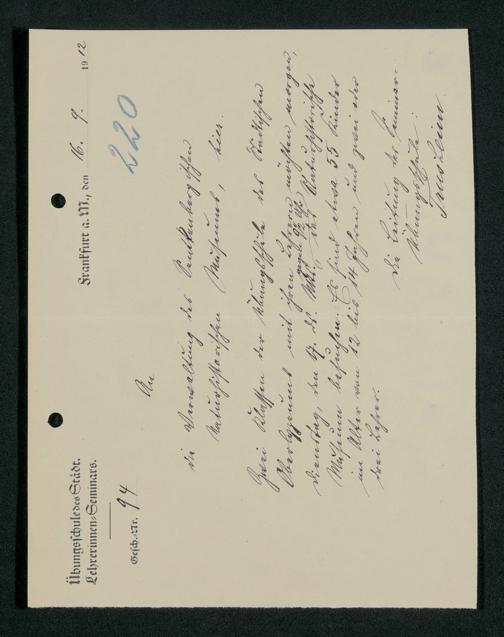 Übungsschule des Städt.
Lehrerinnen-Seminars.
Gesch.-Nr. 94
Frankfurt a. M., den 16. 9. 1912
220
An
die Verwaltung des Senckenbergischen
Naturhistorischen Museums, hier.
Zwei Klassen der Übungsschule des Städtischen
Oberlyzeums mit ihren Lehrern möchten morgen,
Dienstag, den 17. ds. Mts., gegen Uhr das Naturhistorische
Museum besuchen. Es sind etwa 55 Kinder
im Alter von 12 bis 14 Jahren und zwei oder
drei Lehrer.
Die Leitung der Seminar-
Übungsschule: